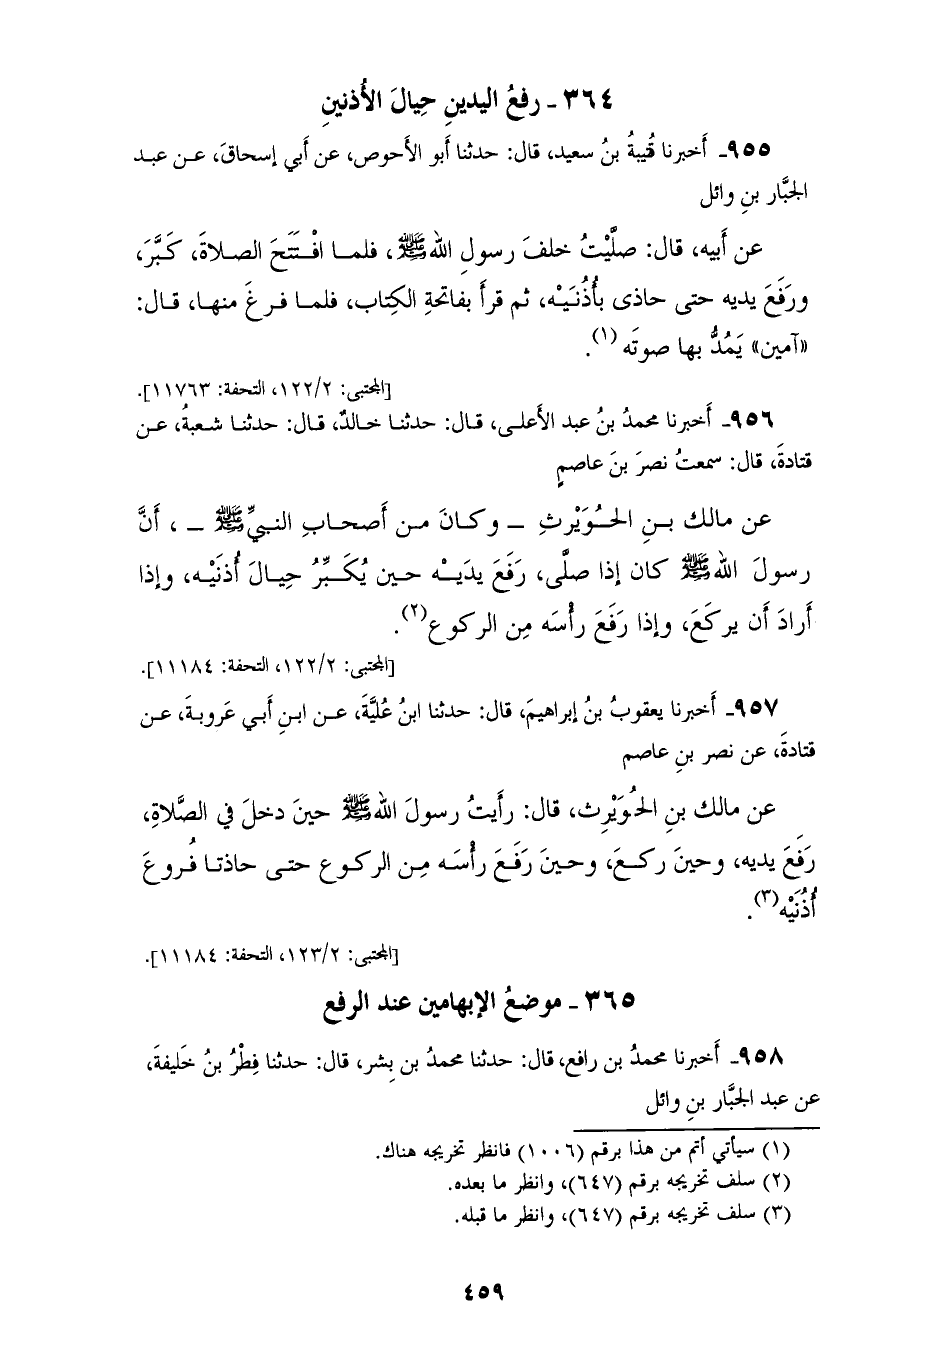 ٣٦٤ ـ رفعُ اليدينِ حِيالَ الأُذنينِ
٩٥٥ـ أَخبرنا قُتيبةُ بنُ سعيد، قال: حدثنا أَبو الأَحوص، عن أَبي إسحاقَ، عـن عبـد
الجَبَّار بنِ وائل
عن أَبيه، قال: صلَّيْتُ خلفَ رسولِ اللهﷺ، فلمـا افْـتَتَحَ الصـلاةَ، كَـبَّرَ،
ورَفَعَ يديه حتى حاذى بأُذُنَيْـه، ثم قرأَ بفاتحةِ الكِتاب، فلمـا فـرغَ منهـا، قـال:
«آمين» يَمُدُّ بها صوتَه (١).
[المجتبى: ١٢٢/٢، التحفة: ١١٧٦٣].
٩٥٦ـ أَخبرنا محمدُ بنُ عبد الأَعلـى، قـال: حدثنـا خـالدٌ، قـال: حدثنـا شعبةُ، عـن
قتادةَ، قال: سمعتُ نصرَ بنَ عاصمٍ
عن مالك بـنِ الحُـوَيْرثِ ـ وكـانَ مـن أَصحـابِ النـبيِّﷺ ـ ، أَنَّ
رسولَ اللهﷺ كان إذا صلَّى، رَفَعَ يدَيْـه حـين يُكَـبِّرُ حِيـالَ أُذنَيْـه، وإذا
أَرادَ أَن يركَعَ، وإذا رَفَعَ رأْسَه مِن الركوع(٢).
[المجتبى: ١٢٢/٢، التحفة: ١١١٨٤].
٩٥٧ـ أَخبرنا يعقوبُ بنُ إبراهيمَ، قال: حدثنا ابنُ عُليَّةَ، عـن ابـنِ أَبي عَروبـةَ، عـن
قتادةَ، عن نصر بنِ عاصم
عن مالك بنِ الحُوَيْرِث، قال: رأَيتُ رسولَ اللهﷺ حينَ دخلَ في الصَّلاةِ،
رَفَعَ يديه، وحينَ ركـعَ، وحـينَ رَفَـعَ رأْسَـه مِـن الركوع حتـى حاذتـا فُروعَ
أُذُنَيْه(٣).
[المجتبى: ١٢٣/٢، التحفة: ١١١٨٤].
٣٦٥ ـ موضعُ الإبهامين عند الرفع
٩٥٨ـ أَخبرنا محمدُ بن رافع، قال: حدثنا محمدُ بن بِشر، قال: حدثنا فِطْرُ بنُ خَليفةَ،
عن عبد الجَبَّار بنِ وائل
(١) سيأتي أتم من هذا برقم (١٠٠٦) فانظر تخريجه هناك.
(٢) سلف تخريجه برقم (٦٤٧)، وانظر ما بعده.
(٣) سلف تخريجه برقم (٦٤٧)، وانظر ما قبله.
٤٥٩